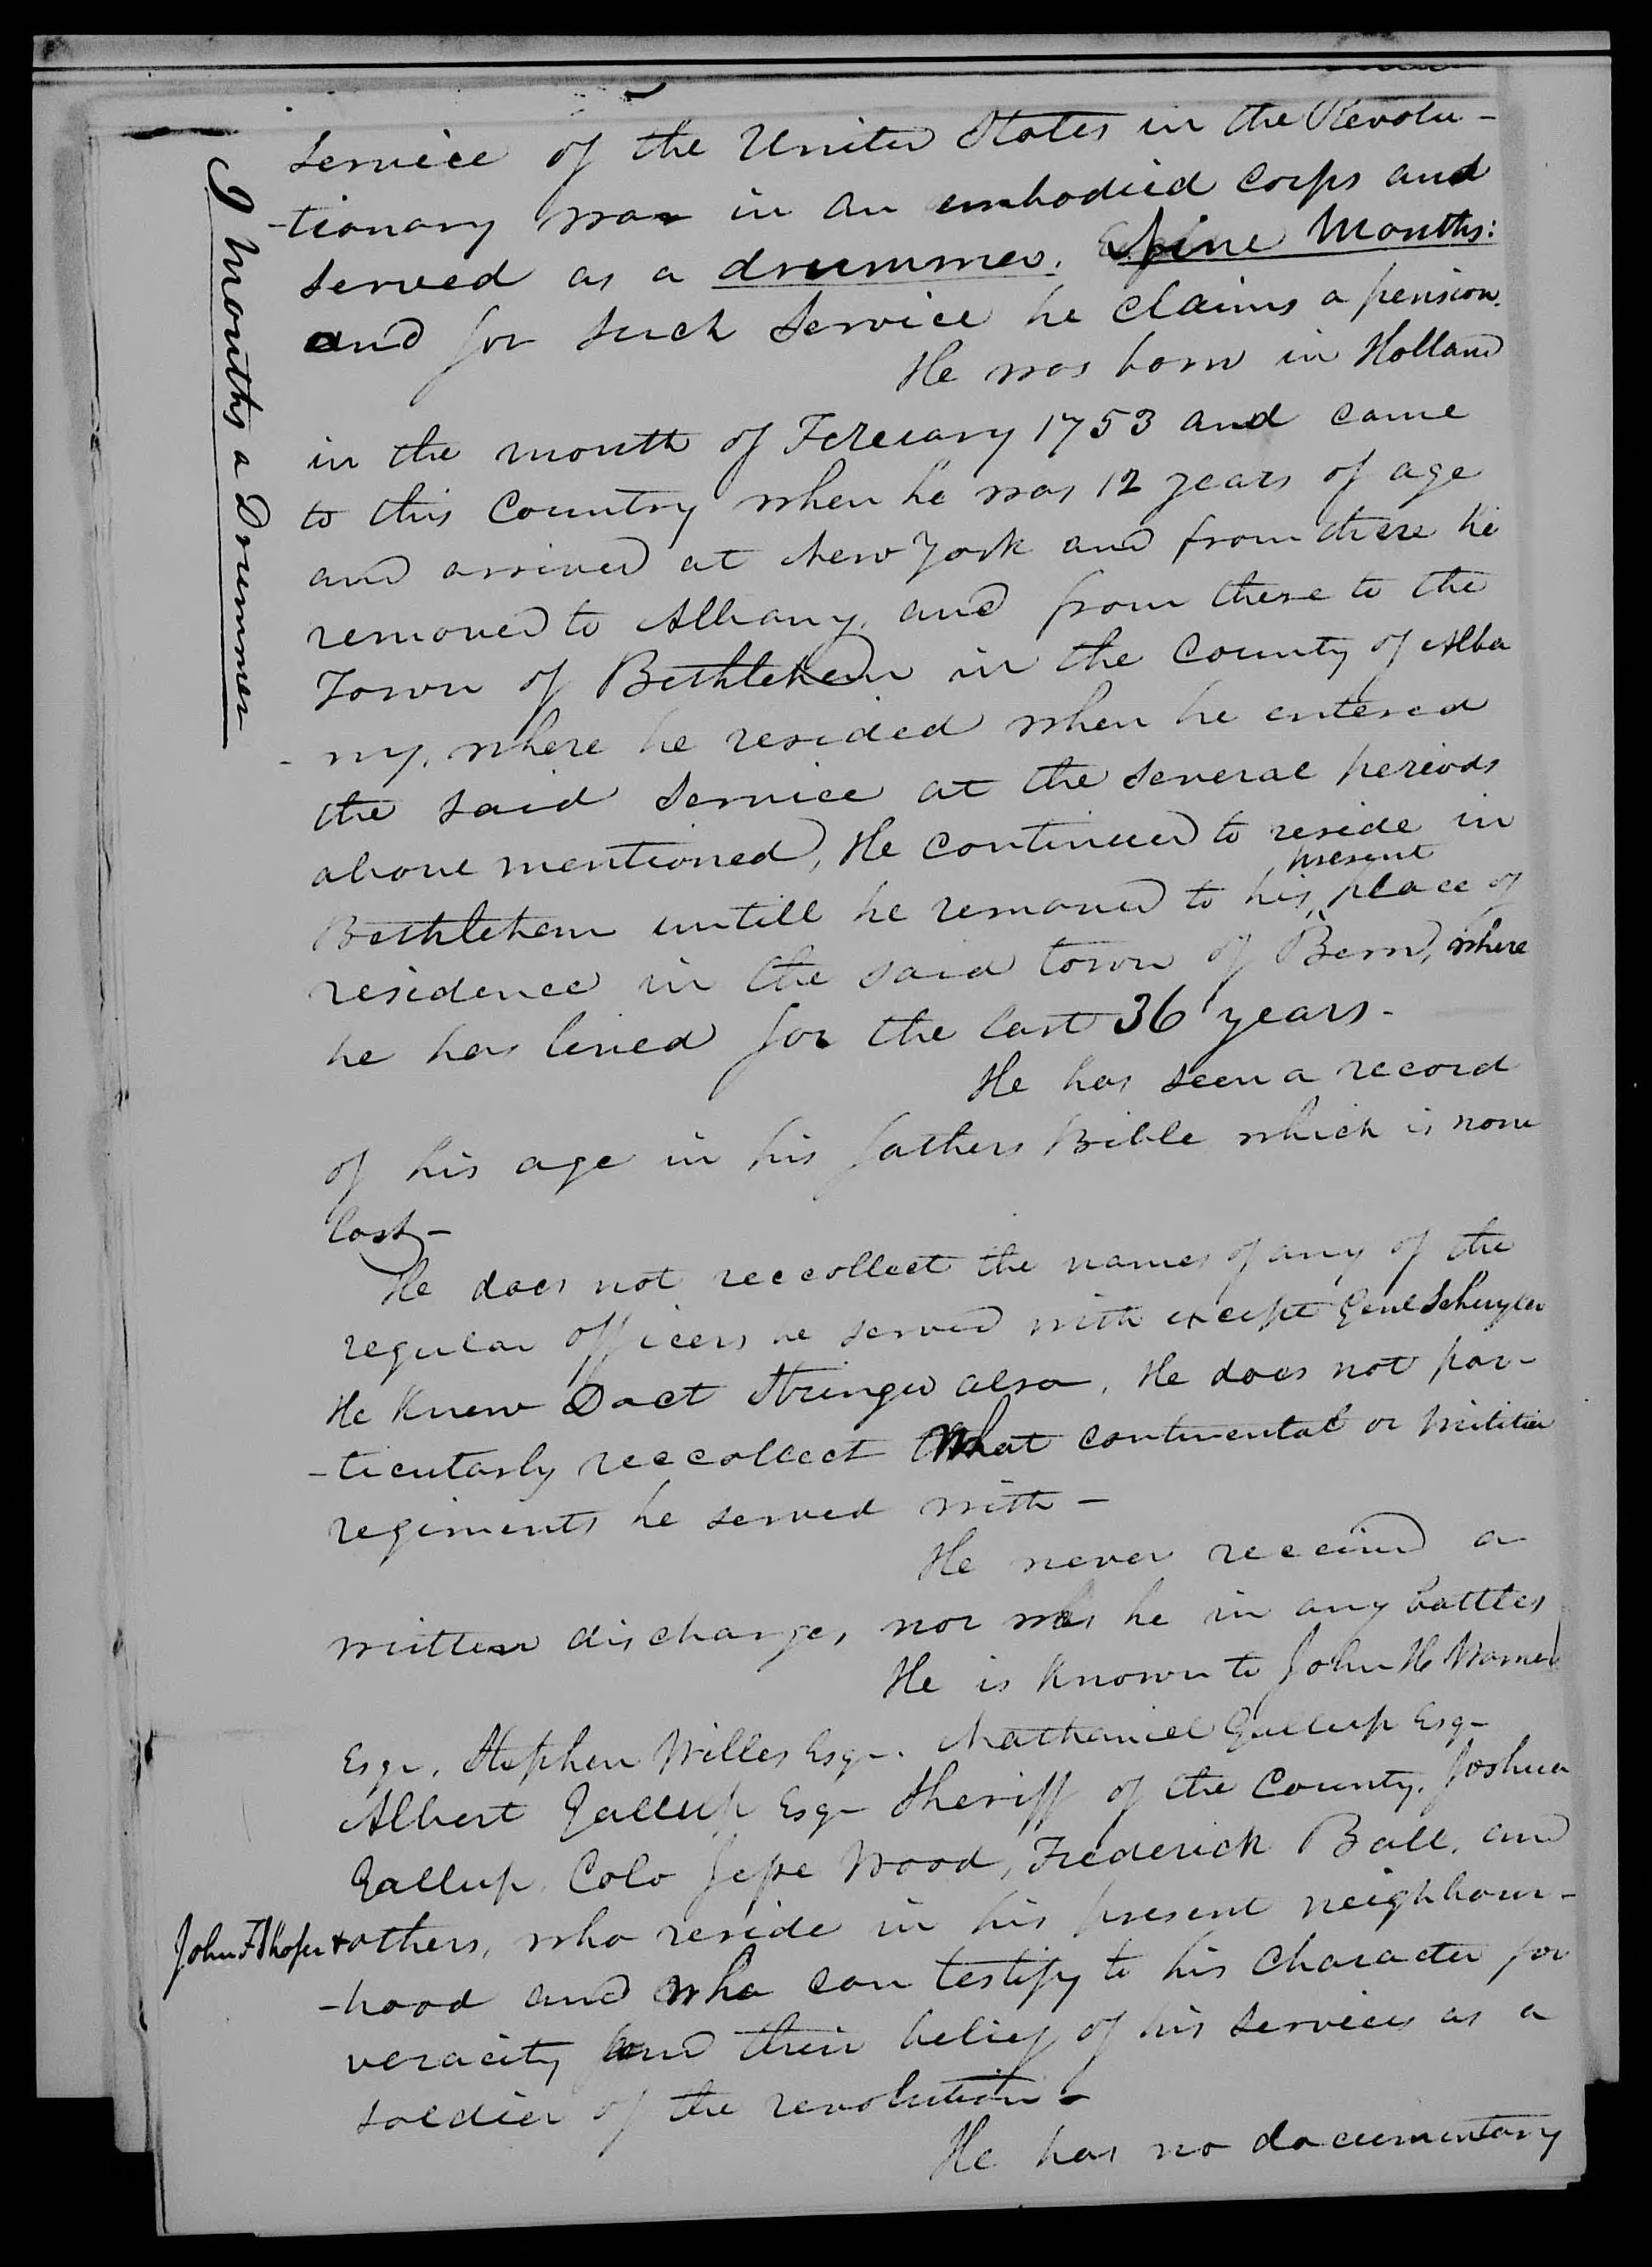 9 Months a Drummer
service of the United States in the Revolu-
-tionary war in an embodied corps and
served as a drummer. Nine Months:
and for such service he claims a pension.
He was born in Holland
in the month of February 1753 and came
to this Country when he was 12 years of age
and arrived at New York and from there he
removed to Albany, and from there to the
Town of Bethlehem in the County of Alba
- ny, where he resided when he entered
the said service at the several periods
above mentioned, He continued to reside in
present
Bethlehem untill he removed to his place of
residence in the said town of Bern, where
he has lived for the last 36 years-
He has seen a record
of his age in his fathers Bible which is now
lost-
He does not reccollect the names of any of the
regular officers he served with except Genl Schuyler
He Knew Doct Stringer also, He does not par-
-ticularly reccollect What continental or militia
regiments he served with-
He never received a
written discharge, nor was he in any battles
He is known to John H Warner
Esqr, Stephen Willes Esqr. Nathaniel Gallup Esqr
Albert Gallup Esqr Sheriff of the County, Joshua
Gallup, Colo Jesse Wood, Frederick Ball, and
John F Shafer + others, who reside in his present neighbour-
-hood and who can testify to his Character for
veracity and their belief of his services as a
soldier of the revolution-
He has no documentary